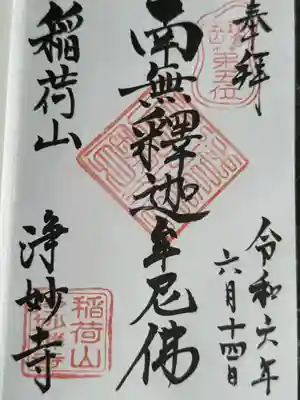 奉拝
令和六年
六月十四日
南無釋迦牟尼佛
稲荷山
浄妙寺
稲荷山